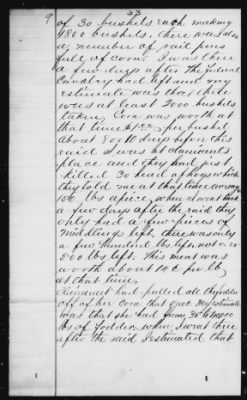 9
33
of 30 bushels each making
4800 bushels. There was also
a number of rail pens
full of corn. I was there
a few days after the Federal
Cavalry had left and my
estimate was that there
was at least 2000 bushels
taken. Corn was worth at
that time per bushel
about 8 or 10 days before this
raid I was at claimants
place and they had just
killed 30 head of hogs which
they told me at that time average
150 lbs apiece, when I went back
a few days after the raid they
only had a few pieces of
middlings left, there was only
a few hundred lbs left not over
500 lbs left. This meat was
worth about 14 c per lb
at that time.
Claimant had pulled all the fodder
off of her corn that year. My estimate
was that she had from 35 to
lbs of fodder, when I was there
after the raid I estimated that